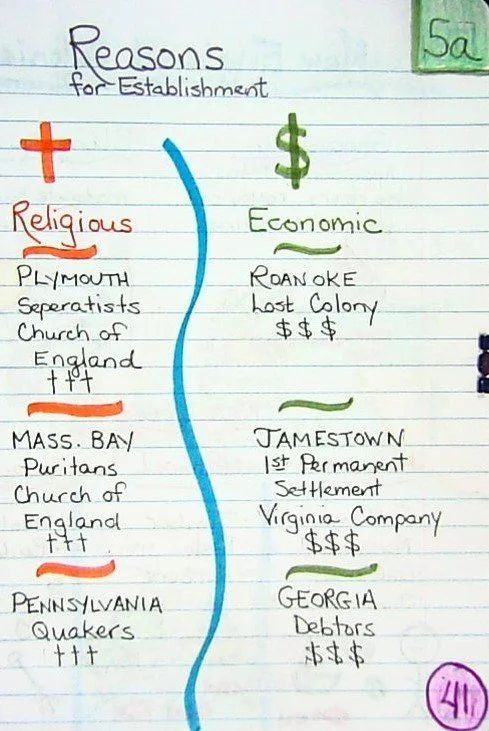 5a
Reasons
for Establishment
$
Religious
PLYMOUTH
Seperatists
Church of
England
†††
MASS. BAY
Puritans
Church of
England
†††
PENNSYLVANIA
Quakers
†††
Economic
ROANOKE
Lost Colony
$ $ $
JAMESTOWN
1st Permanent
Settlement
Virginia Company
$$$
GEORGIA
Debtors
$$$
41